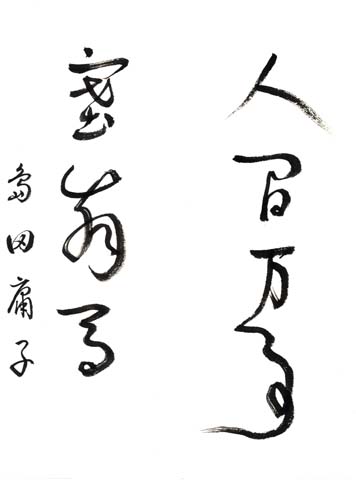 人間万事
塞翁馬
島田庸子